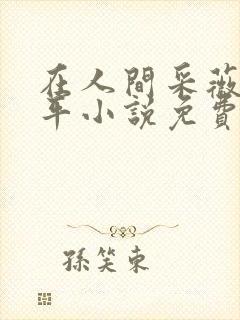 在人間采薇
年小說免費
孫笑東